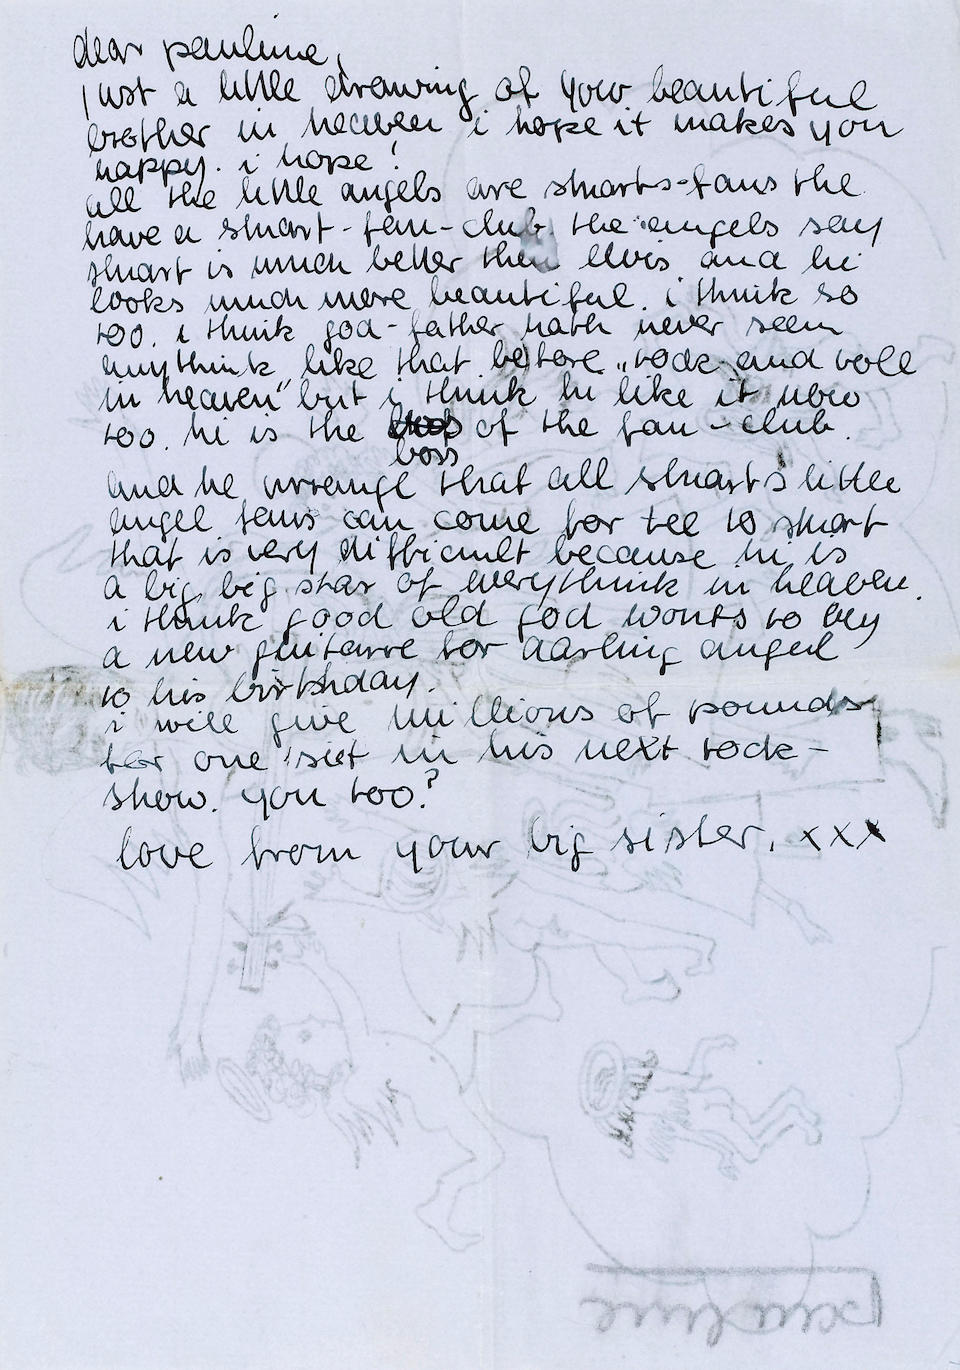 dear pauline,
just a little drawing of your beautiful
brother in heaven i hope it makes you
happy. i hope!
all the little angels are stuarts-fans the
have a stuart-fan-club. the angels say
stuart is much better then elvis and hi
looks much more beautiful. i think so
too. i think god-father hath never seen
anythink like that before „rock and roll
in heaven" but i think hi like it now
too. hi is the of the fan-club.
boss
and he arrange that all stuart's little
angel fans can come for tee to stuart
that is very difficult because hi is
a big, big star of everythink in heaven.
i think good old god wonts to buy
a new guitarre for darling angel
to his birthday.
i will give millions of pounds
for one siet in his next rock-
show. you too?
love from your big sister. xxx
pauline